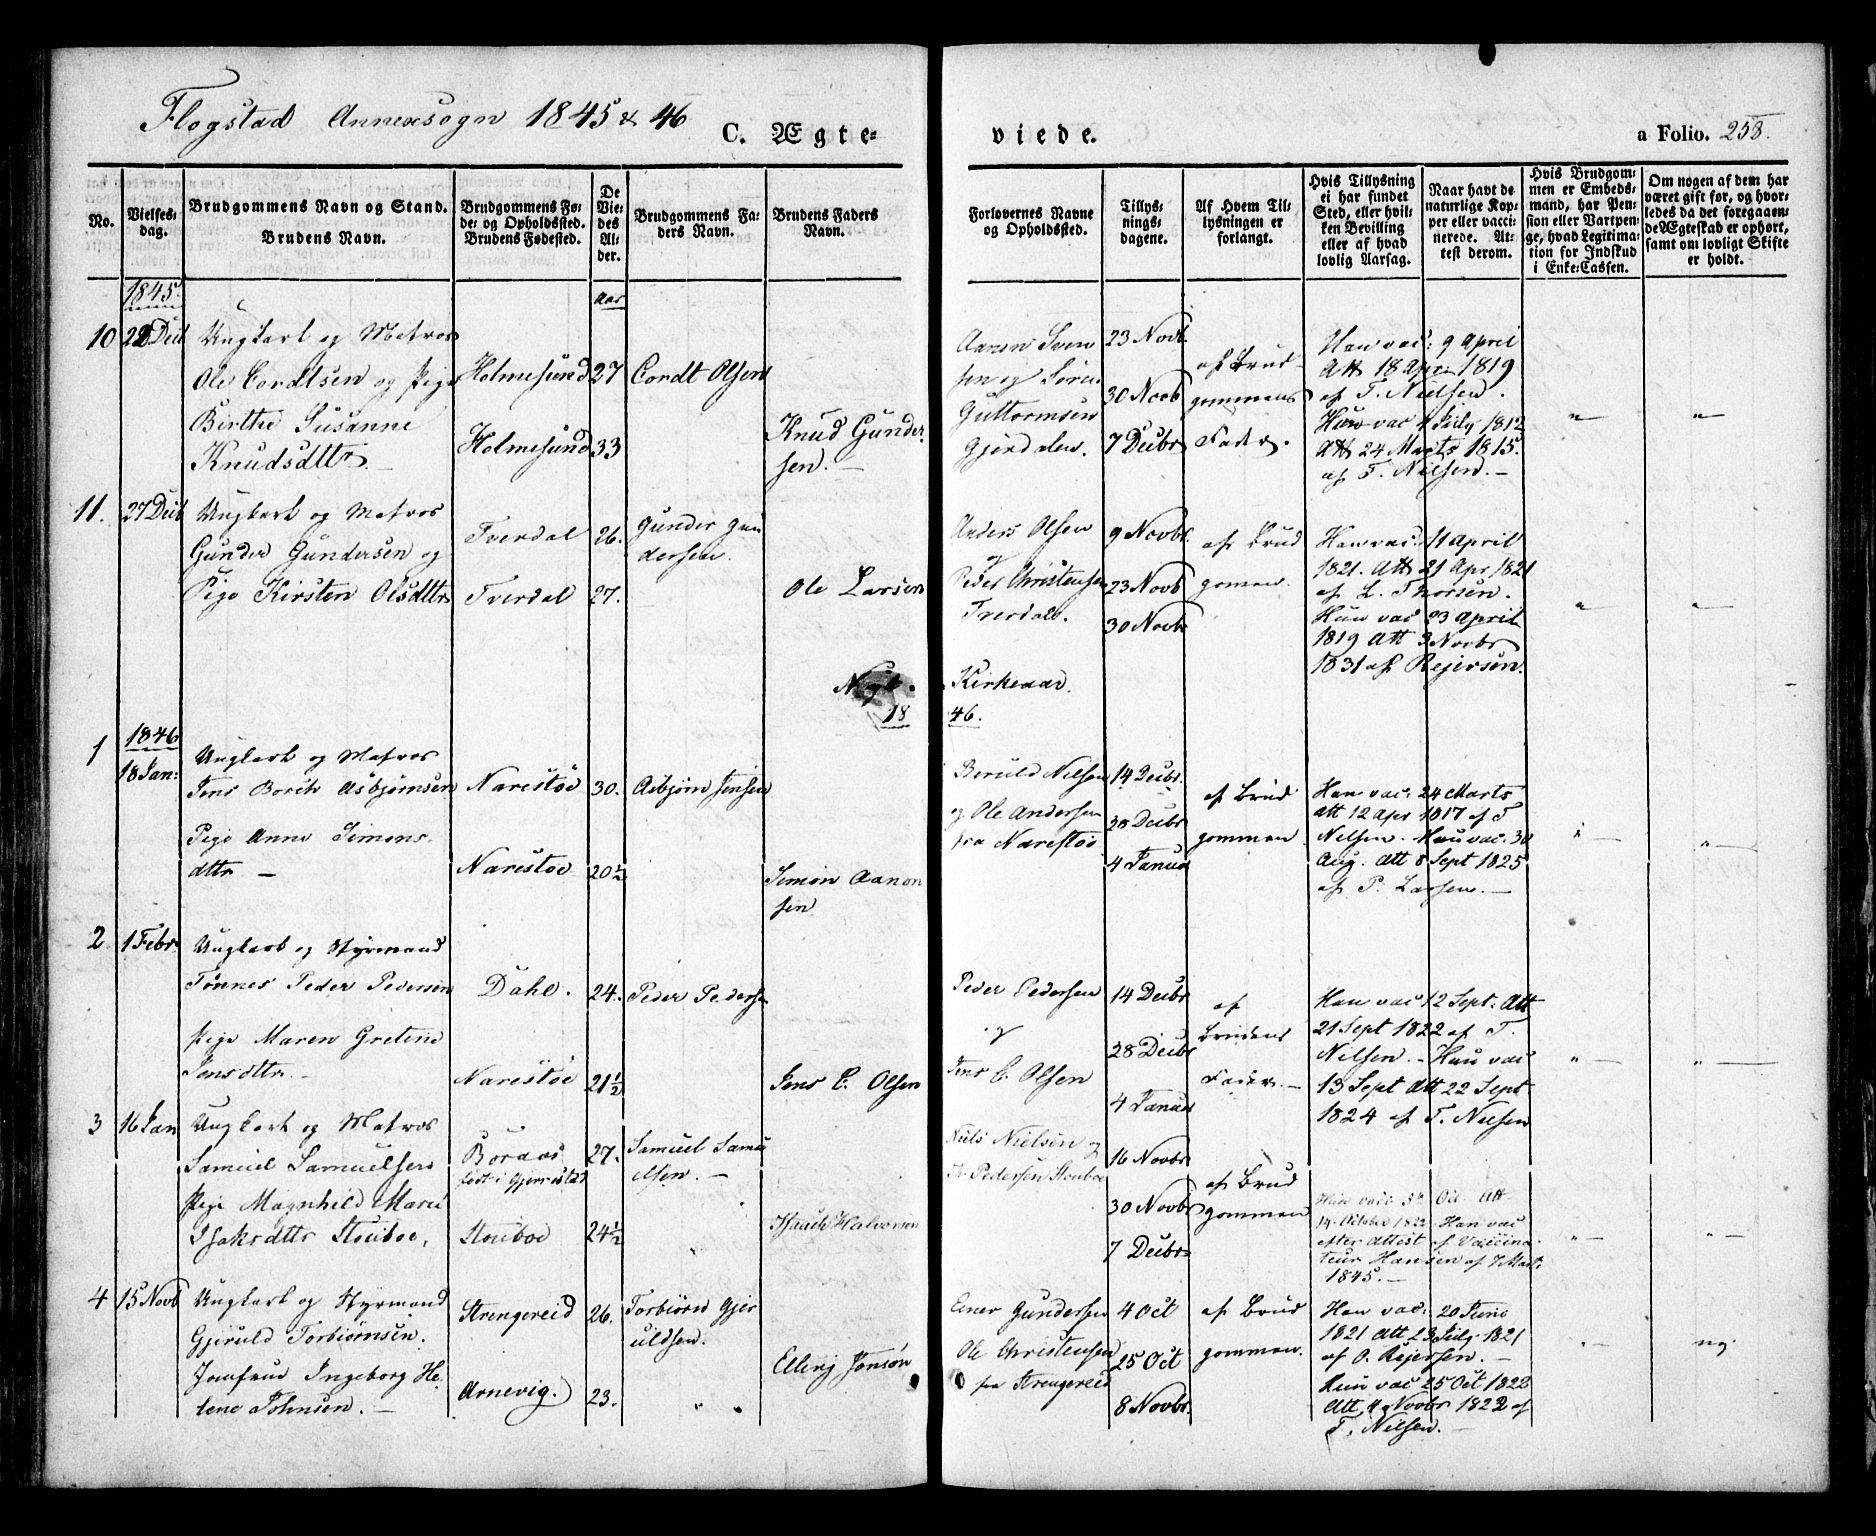 Flogstad Annexsogn 1845 & 46
C. Ægte-
viede.
a Folio. 258.
No.
Vielses-
dag.
Brudgommens Navn og Stand.
Brudens Navn.
Brudgommens Fø-
de- og Opholdssted.
Brudens Fødested.
De
Vie-
des
Al-
der.
Brudgommens Fa-
ders Navn.
Brudens Faders
Navn.
Forlovernes Navne
og Opholdssted.
Tillys-
nings-
dagene.
Af Hvem Til-
lysningen er
forlangt.
Hvis Tillysning
ei har fundet
Sted, eller hvil-
ken Bevilling
eller af hvad
lovlig Aarsag.
Naar havt de
naturlige Kop-
per eller vacci-
nerede. At-
test derom.
Hvis Brudgom-
men er Embeds-
mand, har Pen-
sion eller Vartpen-
ge, hvad Legitima-
tion for Indskud
i Enke-Cassen.
Om nogen af dem har
været gift før, og hvor-
ledes da det foregaaen-
de Ægteskab er ophørt,
samt om lovligt Skifte
er holdt.
1845.
aar
10 22 Decb
Ungkarl og Matros
Ole Cordtsen og Pige
Birthe Susanne
Knudsdttr. —
Holmesund 27
Holmesund 33
Cordt Olsen
Knud Gunder-
sen. —
Aanen Sven
sen og Søren
Guttormsen
Gjerdalen.
23 Novb.
30 Novb
7 Decbr
af Brud-
gommens
Fader.
Han vac: 9 April
Att 18 Apr 1819
af T. Nielsen.
Hun vac 1 July 1812
Att 24 Marts 1815.
af T. Nielsen. —
" — " —
11. 27 Decb
Ungkarl og Matros
Gunder Gundersen og
Pige Kirsten Olsdttr
Tverdal 26.
Tverdal 27.
Gunder Gun
dersen.
Ole Larsen
Anders Olsen
og
Peder Christensen
Tverdal.
9 Novbr.
23 Novb
30 Novbr
af Brud
gommen.
Han vac. 11 April
1821. Att 21 Apr 1821
af L. Thorsen.
Hun vac 23 April
1819 Att 3 Novbr
1831 af Rejersen.
" — " —
Nyt. Kirkeaar.
18 46.
1846
1 18 Jan:
Ungkarl og Matros
Jens Boreth Asbjørnsen
Pige Anne Simons-
dttr —
Narestøe 30.
Narestøe 20½
Asbjørn Jensen
Simon Aanon
sen
Beruld Nilsen
og Ole Andersen
fra Narestøe
14 Decbr.
28 Decbr
4 Janua
af Brud
gommen
Han vac: 24 Marts
Att 12 Apr 1817 af T
Nilsen. Hun vac. 30
Aug. Att 8 Sept 1825
af P. Larsen. —
" — " —
2 1 Febr
Ungkarl og Styrmand
Tønnes Peder Pedersen
Pige Maren Gretine
Jensdttr. —
Dahl. 24.
Narestøe 21½
Peder Pedersen
Jens C. Olsen
Peder Pedersen
og
Jens C. Olsen
14 Decbr
28 Decbr
4 Janua
af
Brudens
Fader. —
Han vac 12 Sept. Att
21 Sept 1822 af T.
Nilsen. — Hun vac
13 Sept Att 22 Sept
1824 af T. Nilsen
" — " —
3 16 Jan
Ungkarl og Matros
Samuel Samuelsen
Pige Magnhild Marie
Isaksdttr Stouboe,
Boraas 27.
født i Gjerrestad
Stouboe 24½
Samuel Samu
elsen. —
Isaach Halvorsen
Niels Nielsen og
Th. Pedersen Stouboe
16 Novbr
30 Novbr
7 Decbr
af Brud
gommen
Hun vacc 3de Oct. Att
14 October 1822 Han vac
efter Attest af Vaccina-
teur Hansen af 7 Mart.
1845. —
" — " —
4 15 Novb
Ungkarl og Styrmand
Gjeruld Torbiørnsen.
Jomfrue Ingeborg He-
lene Johnsen. —
Strengereid 26.
Arnevig. 23.
Torbiørn Gjer
uldsen.
Ellevj Jonsøn
" "
Einer Gundersen
Ole Christensen
fra Strengereid
4 Oct
25 Oct
8 Novbr.
af Brud
gommen.
Han vac: 20 Juni
1821 Att 23 July 1821
af O. Rejersen. —
Hun vac 25 Oct 1822
Att 4 Novbr 1822 af
T. Nilsen. —
" — nej